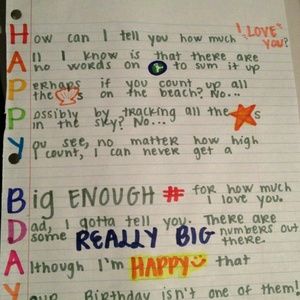 How can I tell you how much I LOVE you?
All I know is that there are
no words on to sum it up
Perhaps if you count up all
the s on the beach? No...
Possibly by tracking all the s
in the sky? No...
You see, no matter how high
I count, I can never get a
Big ENOUGH # for how much
I love you.
Dad, I gotta tell you. There are
some REALLY BIG numbers out
there.
Although I'm HAPPY that
Your Birthday isn't one of them!